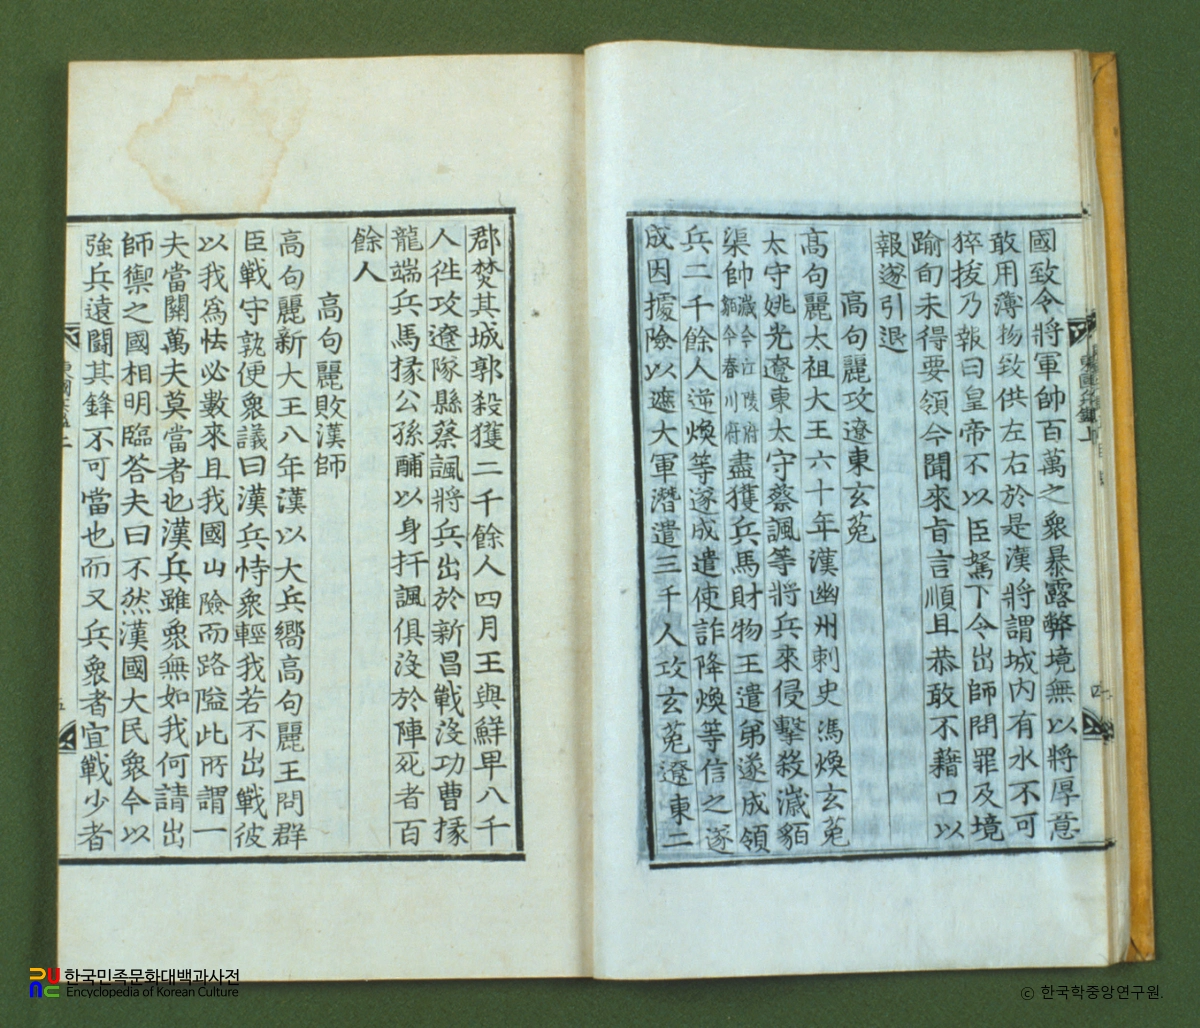 國致令將軍帥百萬之衆暴露弊境無以將厚意
敢用薄物致供左右於是漢將謂城內有水不可
猝拔乃報曰皇帝不以臣駑下令出師問罪及境
踰旬未得要領今聞來旨言順且恭敢不藉口以
報遂引退
高句麗攻遼東玄菟
高句麗太祖大王六十年漢幽州刺史馮煥玄菟
太守姚光遼東太守蔡諷等將兵來侵擊殺濊貊
渠帥濊今江陵府貊今春川府盡獲兵馬財物王遣弟遂成領
兵二千餘人逆煥等遂成遣使詐降煥等信之遂
成因據險以遮大軍潛遣三千人攻玄菟遼東二
郡焚其城郭殺獲二千餘人四月王與鮮卑八千
人徃攻遼隊縣蔡諷將兵出於新昌戰沒功曹掾
龍端兵馬掾公孫酺以身扞諷俱沒於陣死者百
餘人
高句麗敗漢師
高句麗新大王八年漢以大兵嚮高句麗王問群
臣戰守孰便衆議曰漢兵恃衆輕我若不出戰彼
以我爲怯必數來且我國山險而路隘此所謂一
夫當關萬夫莫當者也漢兵雖衆無如我何請出
師禦之國相明臨答夫曰不然漢國大民衆今以
強兵遠鬪其鋒不可當也而又兵衆者宜戰少者
한국민족문화대백과사전
Encyclopedia of Korean Culture
ⓒ 한국학중앙연구원.